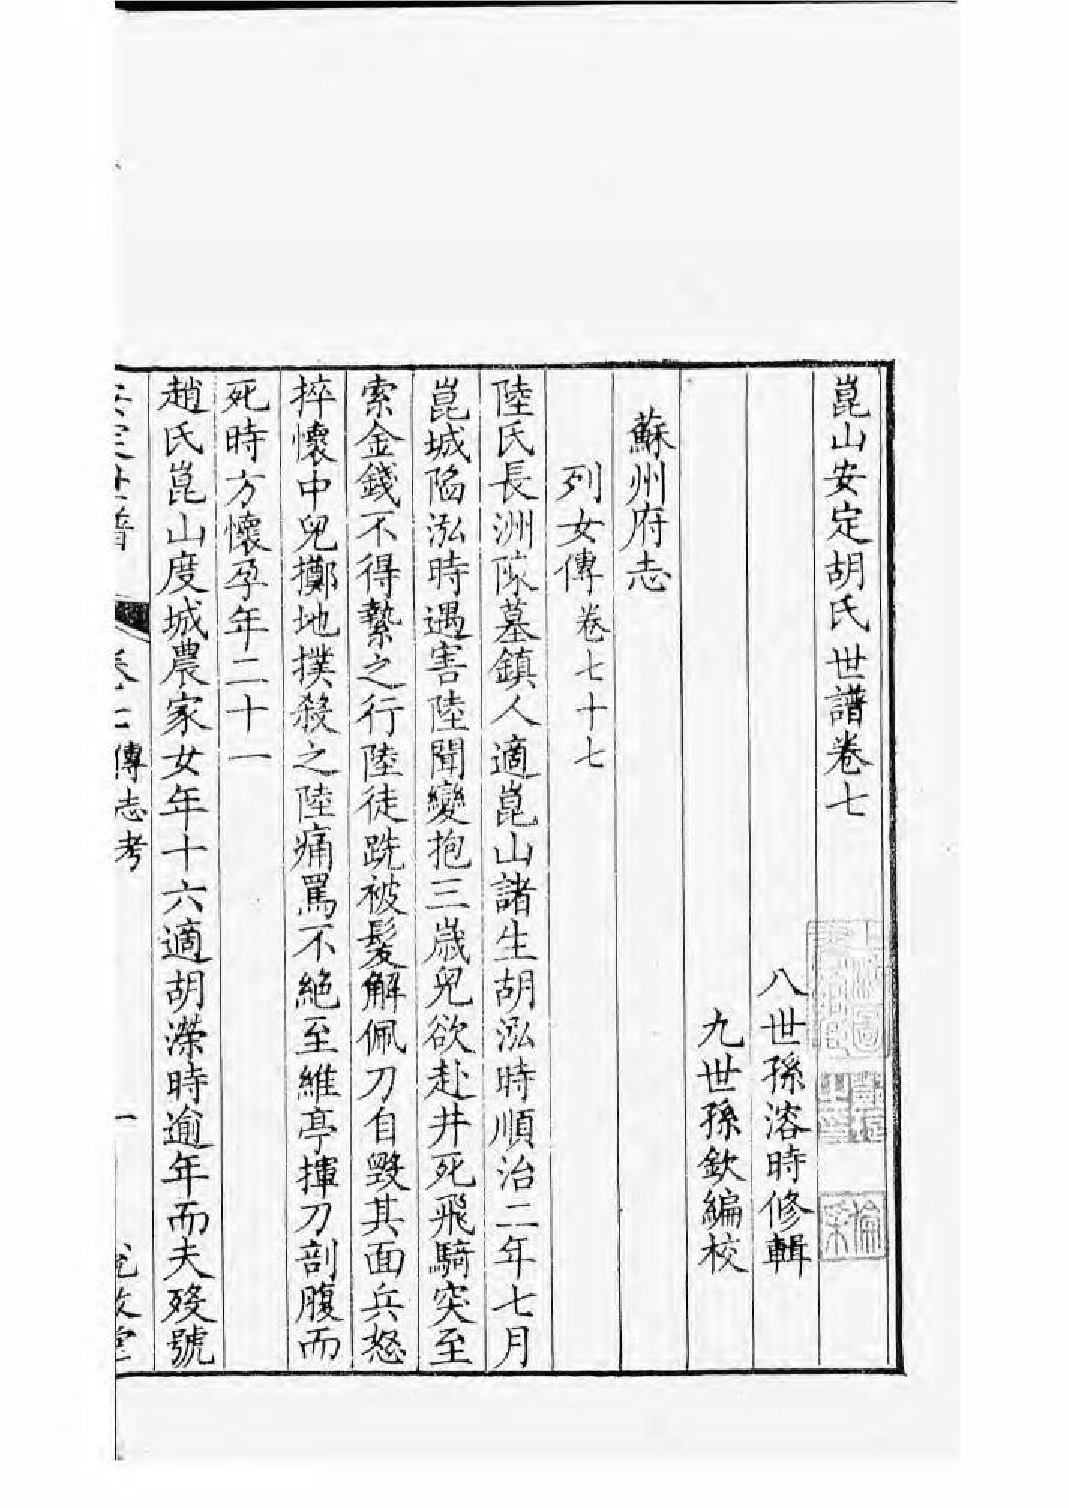 崑山安定胡氏世譜卷七
八世孫溶時修輯
九世孫欽編校
蘇州府志
列女傳卷七十七
陸氏長洲陳墓鎮人適崑山諸生胡泓時順治二年七月
崑城陷泓時遇害陸聞變抱三歲兒欲赴井死飛騎突至
索金錢不得縶之行陸徒跣被髮解佩刀自毀其面兵怒
捽懷中兒擲地撲殺之陸痛罵不絕至維亭揮刀剖腹而
死時方懷孕年二十一
趙氏崑山度城農家女年十六適胡濚時逾年而夫歿號
安定世譜 卷七傳志考 一